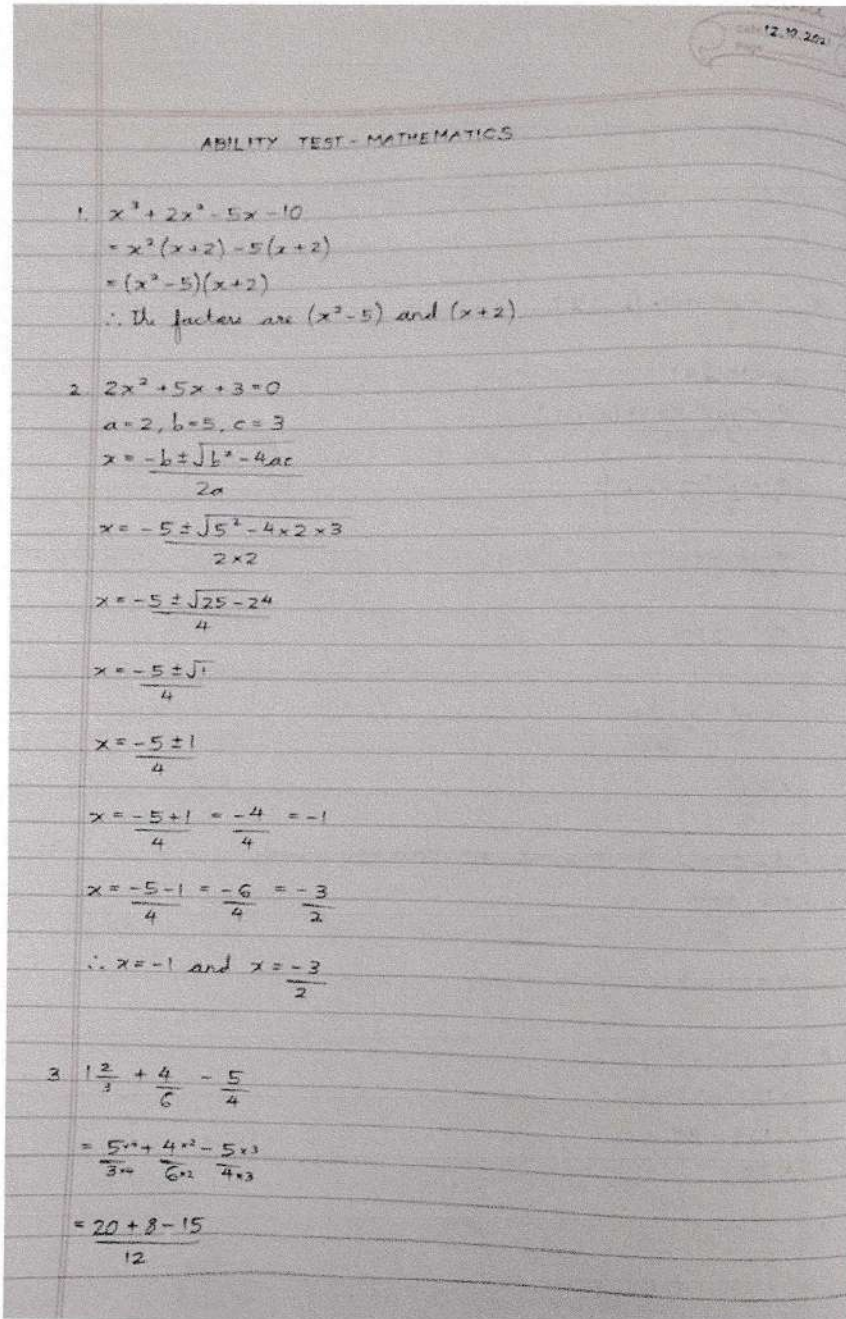 12.10.2021
ABILITY TEST - MATHEMATICS
1. x³ + 2x² - 5x - 10
= x²(x+2) - 5(x+2)
= (x² - 5)(x+2)
∴ The factors are (x² - 5) and (x+2)
2 2x² + 5x + 3 = 0
a = 2, b = 5, c = 3
x = -b ± √b² - 4ac
2a
x = -5 ± √5² - 4 × 2 × 3
2 × 2
x = -5 ± √25 - 24
4
x = -5 ± √1
4
x = -5 ± 1
4
x = -5 + 1 = -4 = -1
4 4
x = -5 - 1 = -6 = -3
4 4 2
∴ x = -1 and x = -3
2
3 1 2/3 + 4/6 - 5/4
= 5×4/3×4 + 4×2/6×2 - 5×3/4×3
= 20 + 8 - 15
12